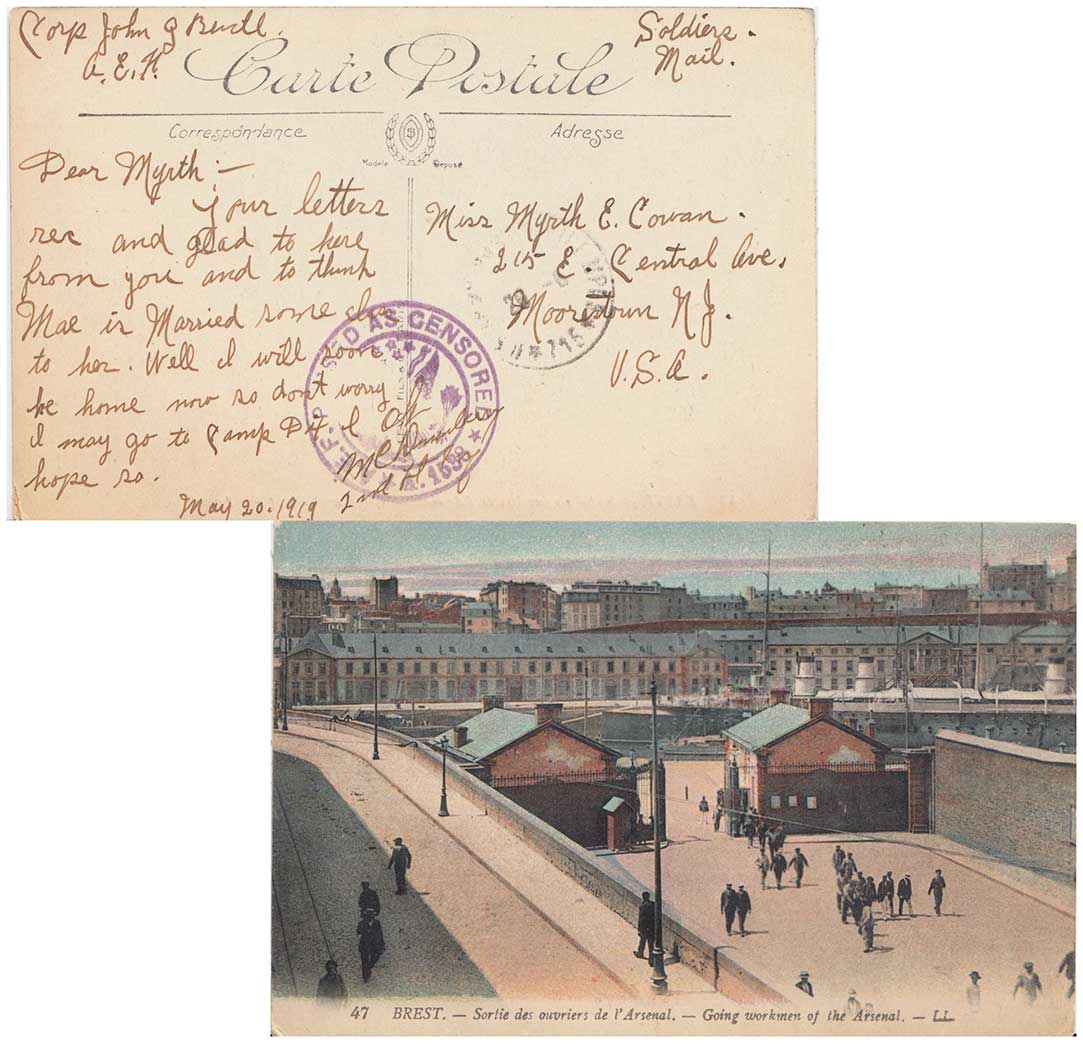 Corp John G Bevill.
A.E.F.
Soldiers.
Mail.
Carte Postale
Correspondance
Adresse
Modèle Déposé
Dear Myrth :—
Your letters
rec and glad to here
from you and to think
Mae is Married some
to her. Well I will soon
be home now so dont worry
I may go to Camp Dix I
hope so.
May 20. 1919
Miss Myrth E. Cowan.
215 E. Central Ave.
Moorestown N.J.
U.S.A.
A.E.F. PASSED AS CENSORED
A. 1698
OK
2nd Lt
795
47 BREST. — Sortie des ouvriers de l'Arsenal. — Going workmen of the Arsenal. — LL